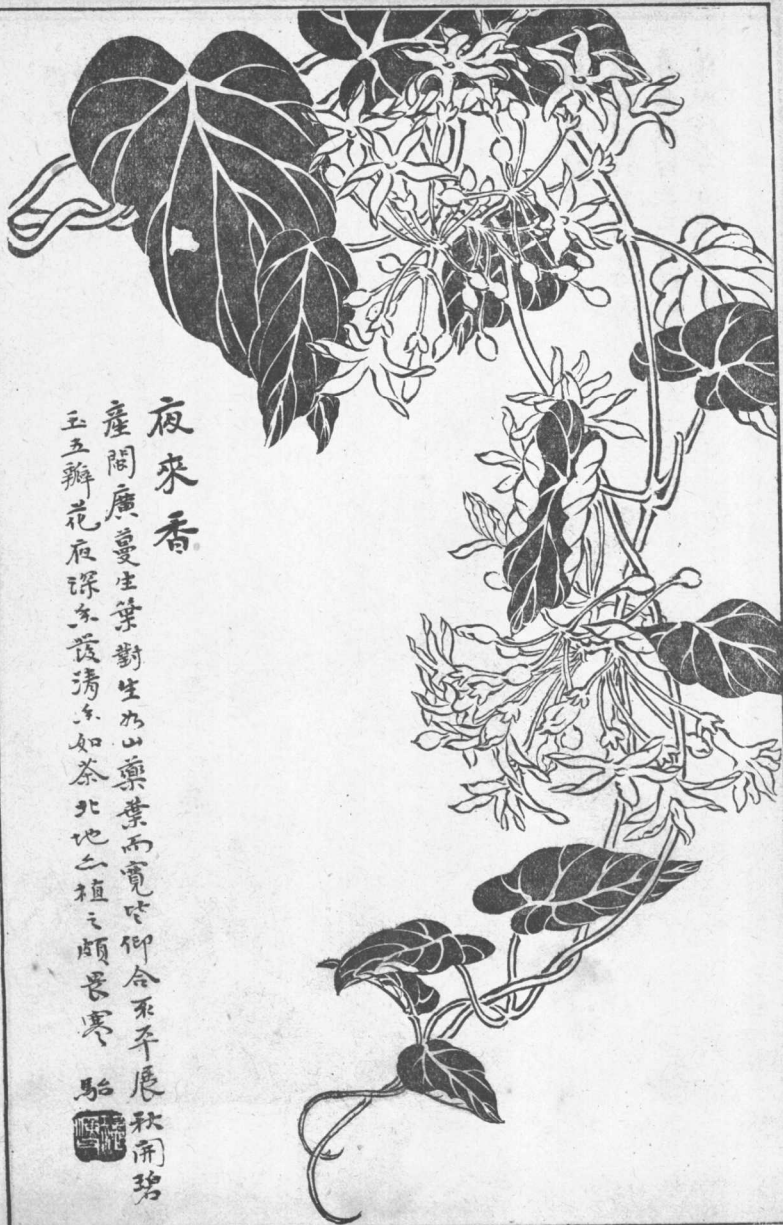 夜來香
產閩廣蔓生葉對生如山藥葉而寬皆仰合不平展秋開碧
玉五瓣花夜深乃發清香如茶北地亦植之頗畏寒
駘